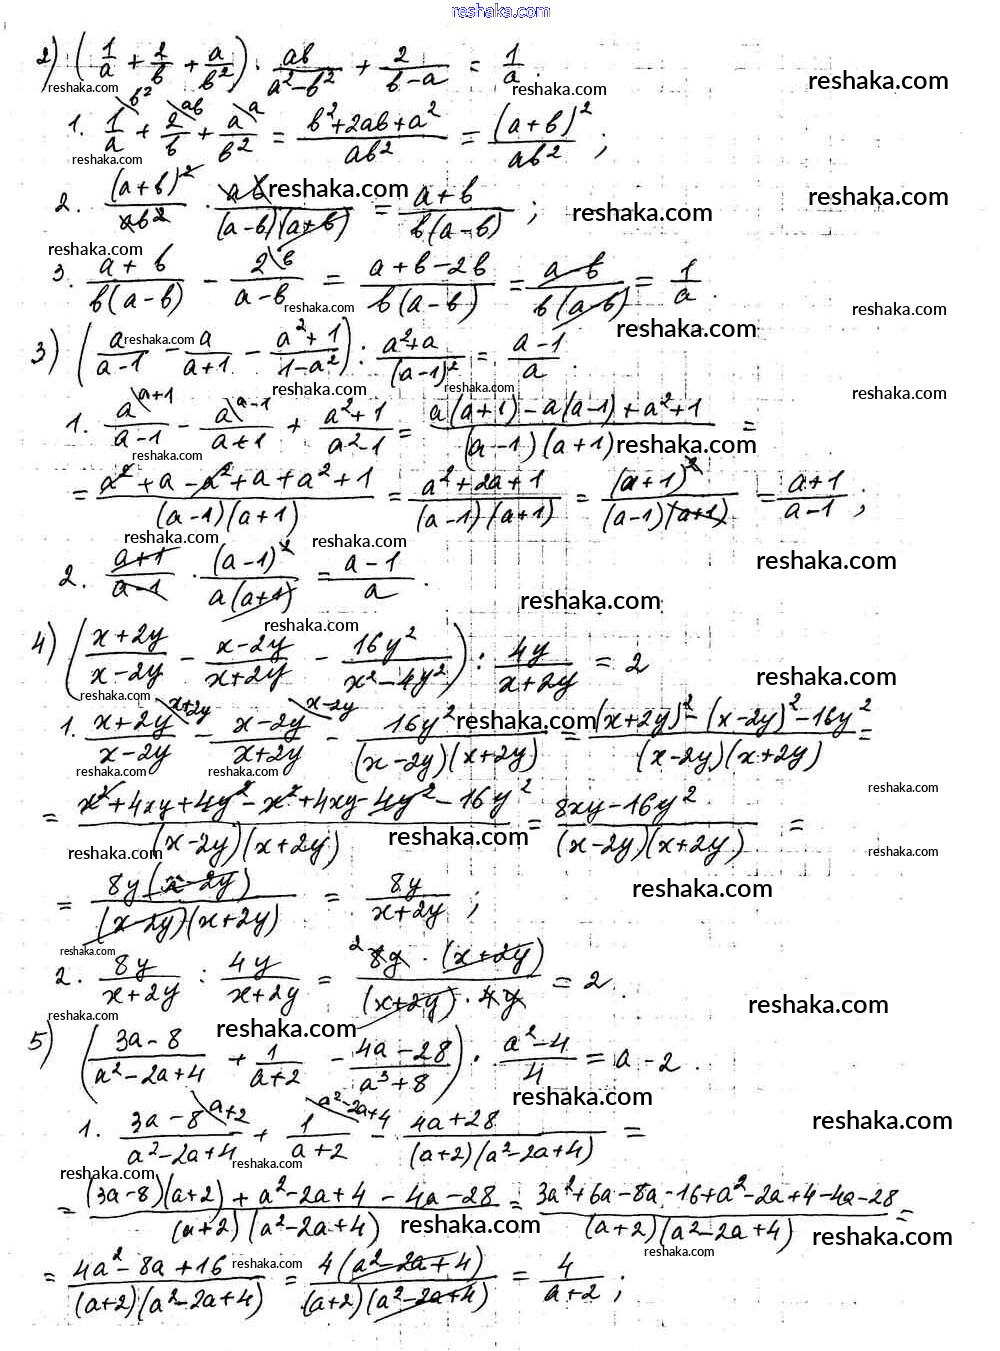 reshaka.com
2) (1/a + 2/в + a/в²) · aв/(a²-в²) + 2/(в-a) = 1/a.
1. 1/a \в² + 2/в \aв + a/в² \a = (в²+2aв+a²)/aв² = (a+в)²/aв² ;
2. (a+в)²/aв² · aв/((a-в)(a+в)) = (a+в)/(в(a-в)) ;
3. (a+в)/(в(a-в)) - 2/(a-в) \в = (a+в-2в)/(в(a-в)) = (a-в)/(в(a-в)) = 1/a.
3) (a/(a-1) - a/(a+1) - (a²+1)/(1-a²)) : (a²+a)/(a-1)² = (a-1)/a.
1. a/(a-1) \a+1 - a/(a+1) \a-1 + (a²+1)/(a²-1) = (a(a+1)-a(a-1)+a²+1)/((a-1)(a+1)) =
= (a²+a-a²+a+a²+1)/((a-1)(a+1)) = (a²+2a+1)/((a-1)(a+1)) = (a+1)²/((a-1)(a+1)) = (a+1)/(a-1) ;
2. (a+1)/(a-1) · (a-1)²/(a(a+1)) = (a-1)/a.
4) ((x+2y)/(x-2y) - (x-2y)/(x+2y) - 16y²/(x²-4y²)) : 4y/(x+2y) = 2
1. (x+2y)/(x-2y) \x+2y - (x-2y)/(x+2y) \x-2y - 16y²/((x-2y)(x+2y)) = ((x+2y)²-(x-2y)²-16y²)/((x-2y)(x+2y)) =
= (x²+4xy+4y²-x²+4xy-4y²-16y²)/((x-2y)(x+2y)) = (8xy-16y²)/((x-2y)(x+2y)) =
= 8y(x-2y)/((x-2y)(x+2y)) = 8y/(x+2y) ;
2. 8y/(x+2y) : 4y/(x+2y) = 2 8y·(x+2y)/((x+2y)·4y) = 2.
5) ((3a-8)/(a²-2a+4) + 1/(a+2) - (4a-28)/(a³+8)) · (a²-4)/4 = a-2.
1. (3a-8)/(a²-2a+4) \a+2 + 1/(a+2) \a²-2a+4 - (4a+28)/((a+2)(a²-2a+4)) =
= ((3a-8)(a+2)+a²-2a+4-4a-28)/((a+2)(a²-2a+4)) = (3a²+6a-8a-16+a²-2a+4-4a-28)/((a+2)(a²-2a+4)) =
= (4a²-8a+16)/((a+2)(a²-2a+4)) = 4(a²-2a+4)/((a+2)(a²-2a+4)) = 4/(a+2) ;